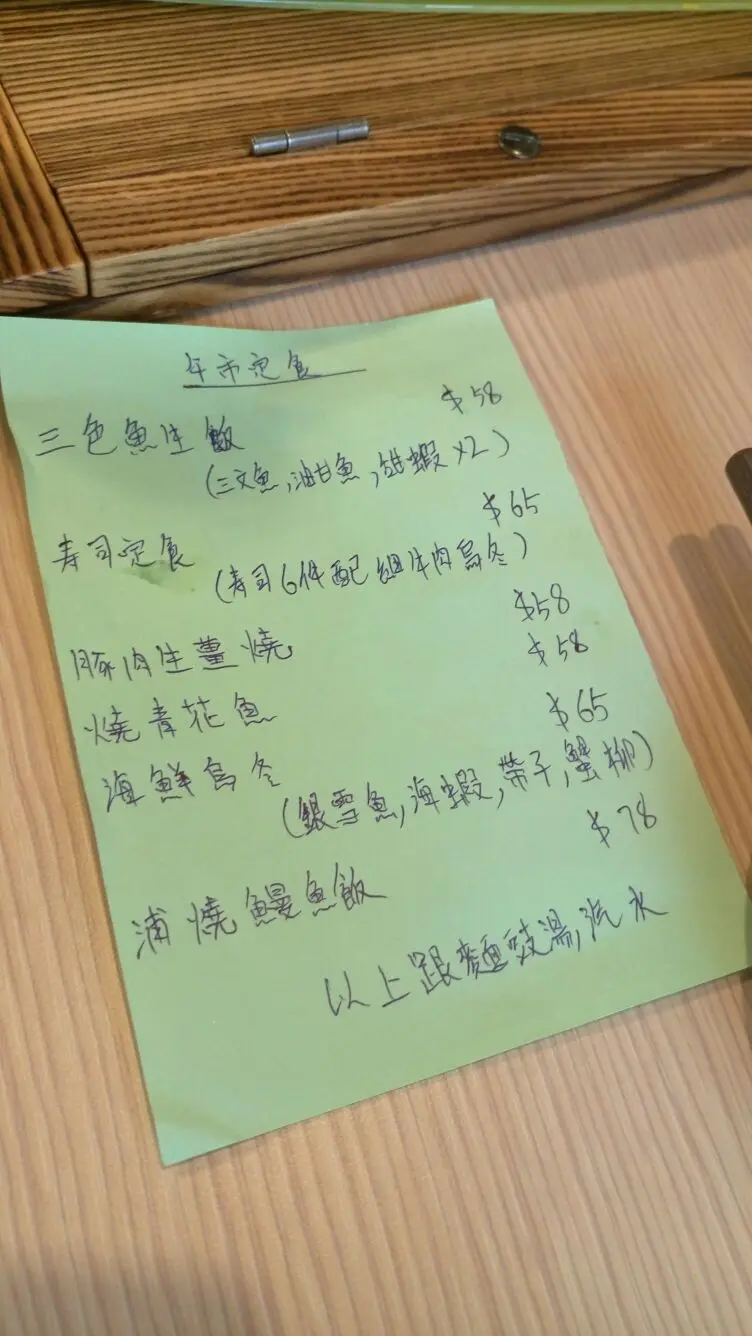 午市定食
三色魚生飯 $58
(三文魚,油甘魚,甜蝦x2)
寿司定食 $65
(寿司6件配細牛肉烏冬)
豚肉生薑燒 $58
燒青花魚 $58
海鮮烏冬 $65
(銀雪魚,海蝦,帶子,蟹柳)
浦燒鰻魚飯 $78
以上跟麵豉湯,汽水